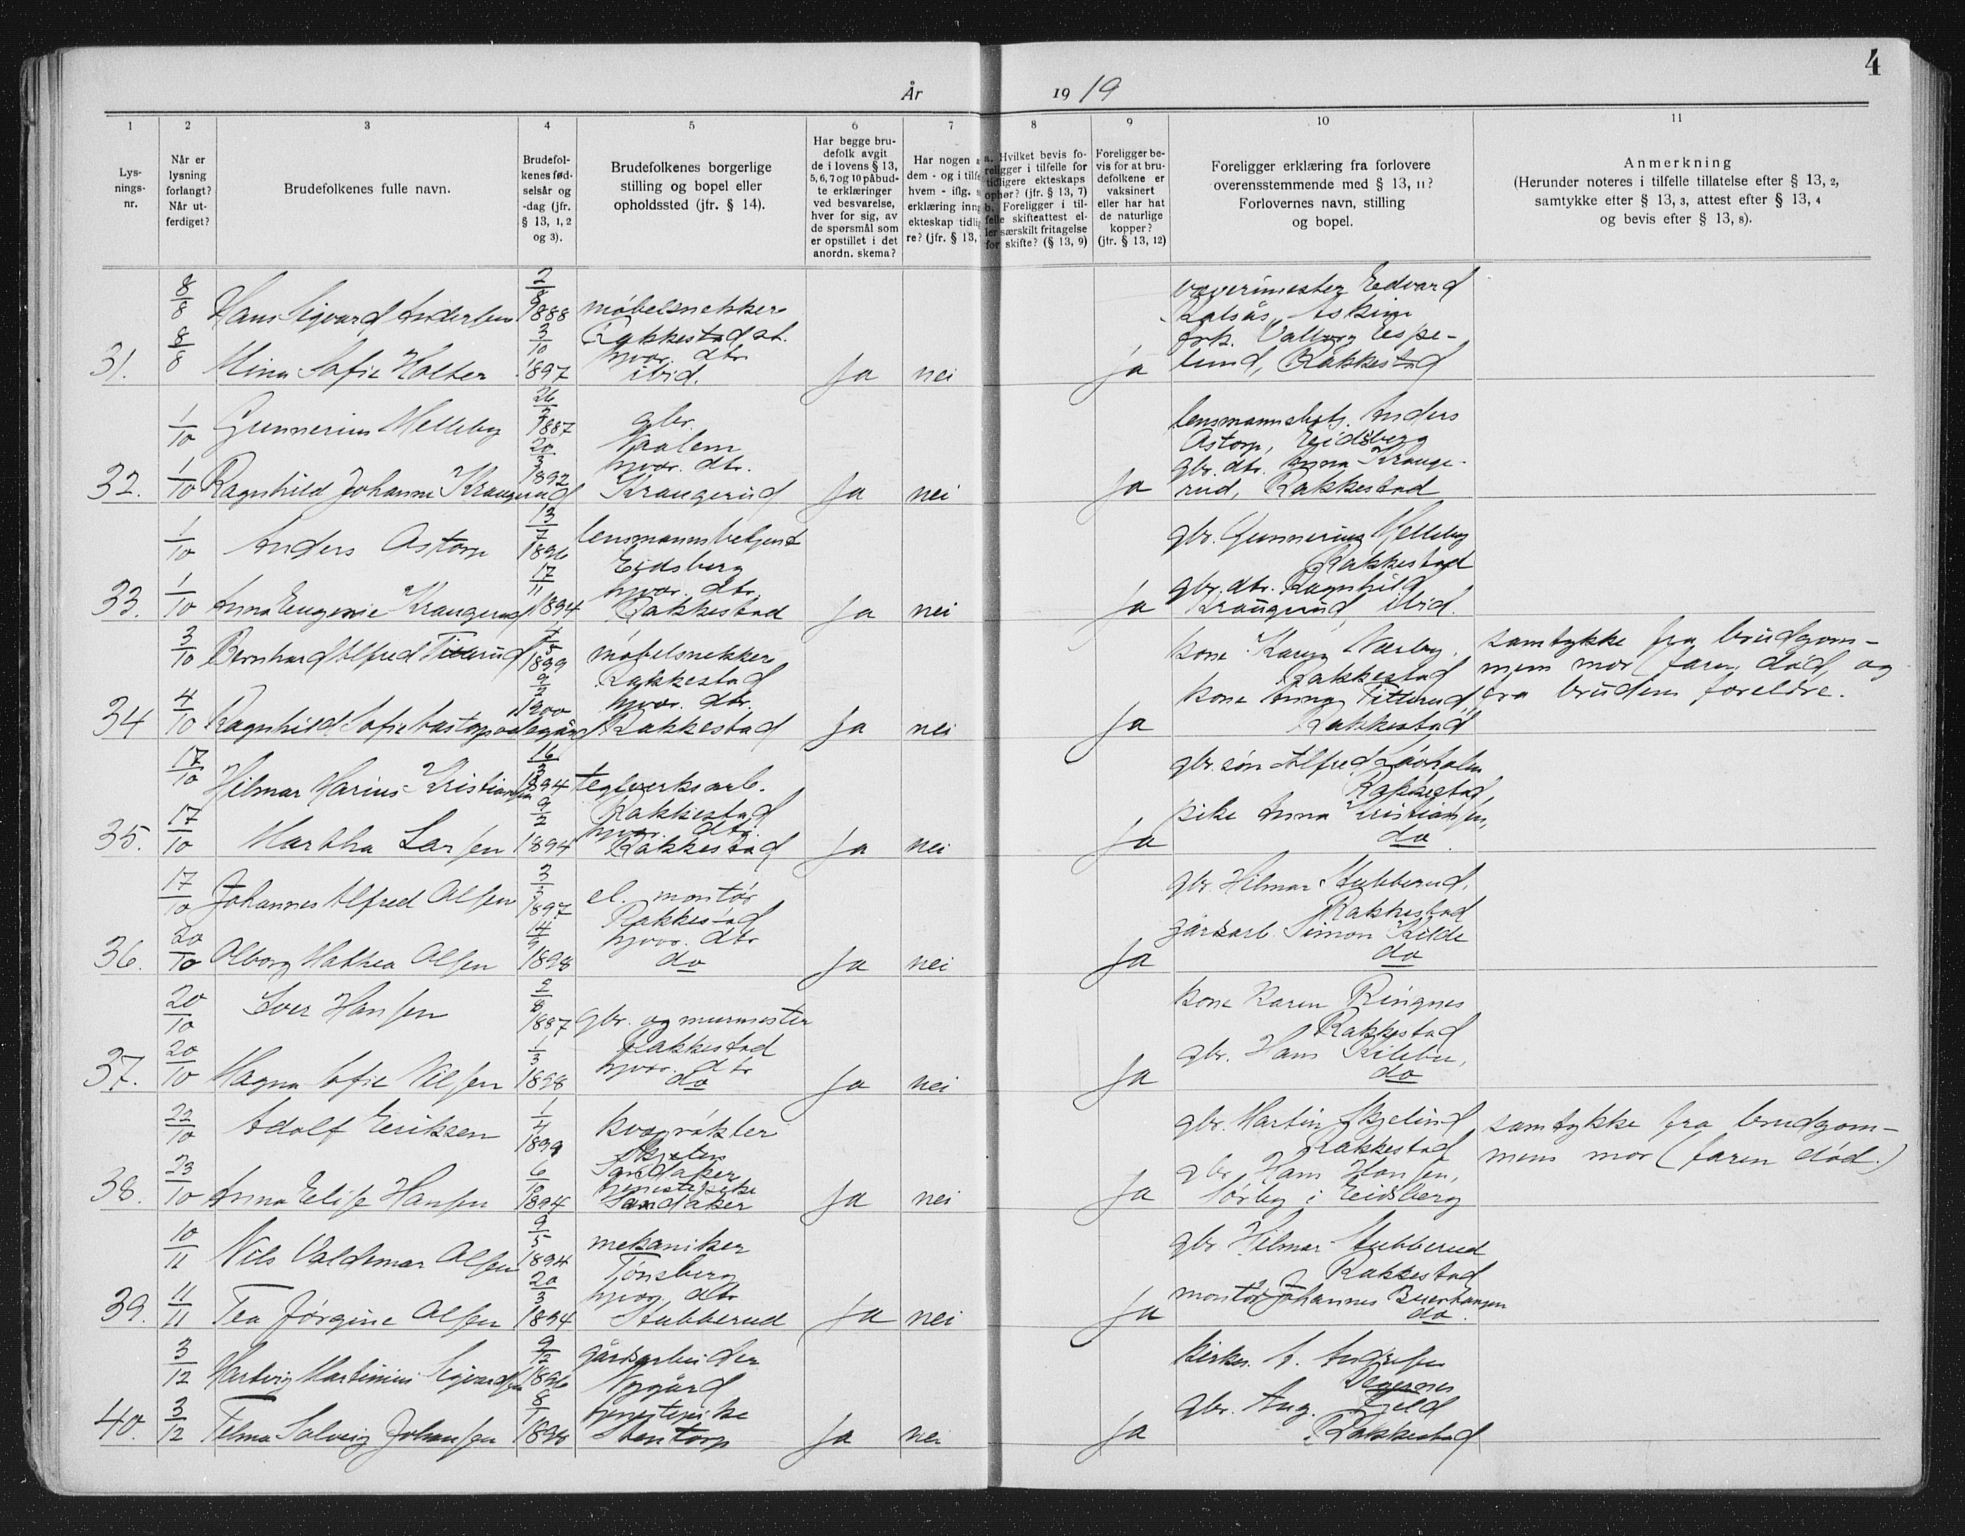 4
År 1919
1 2 3 4 5 6 7 8 9 10 11
Lys-
nings-
nr.
Når er
lysning
forlangt?
Når ut-
ferdiget?
Brudefolkenes fulle navn.
Brudefol-
kenes fød-
selsår og
-dag (jfr.
§ 13, 1, 2
og 3).
Brudefolkenes borgerlige
stilling og bopel eller
opholdssted (jfr. § 14).
Har begge bru-
defolk avgit
de i lovens § 13,
5, 6, 7 og 10 påbud-
te erklæringer
ved besvarelse,
hver for sig, av
de spørsmål som
er opstillet i det
anordn. skema?
Har nogen a
dem - og i tilfe
hvem - iflg. s
erklæring inng
ekteskap tidlig
re? (jfr. § 13,
a. Hvilket bevis fo-
religger i tilfelle for
tidligere ekteskaps
ophør? (jfr. § 13, 7)
b. Foreligger i til-
felle skifteattest el-
ler særskilt fritagelse
for skifte? (§ 13, 9)
Foreligger be-
vis for at bru-
defolkene er
vaksinert
eller har hat
de naturlige
kopper?
(jfr. § 13, 12)
Foreligger erklæring fra forlovere
overensstemmende med § 13, 11?
Forlovernes navn, stilling
og bopel.
Anmerkning
(Herunder noteres i tilfelle tillatelse efter § 13, 2,
samtykke efter § 13, 3, attest efter § 13, 4
og bevis efter § 13, 8).
8/8 Hans Sigvard Andersen 2/8 1888 møbelsnekker
Rakkestad st.
31. 8/8 Mina Sofie Holter 3/10 1897 hjvær. dtr.
ibid. Ja nei Ja
Edvard
Kolsås, Askim
frk. Valborg Espe-
lund, Rakkestad
1/10 Gunnerius Melleby 26/3 1887 gbr.
32. 1/10 Ragnhild Johanne Kraugerud 20/3 1892 hjvær. dtr.
Kraugerud Ja nei Ja
Anders
Astorp, Eidsberg
gbr. dtr. Anna Krauge-
rud, Rakkestad
1/10 Anders Astorp 13/7 1896 lensmannsbetjent
Eidsberg
33. 1/10 Anna Eugenie Kraugerud 17/11 1894 hjvær. dtr.
Rakkestad Ja nei Ja
gbr. Gunnerius Melleby
Rakkestad
gbr. dtr. Ragnhild
Kraugerud, ibid.
3/10 Bernhard Alfred 1899 møbelsnekker
Rakkestad
34 4/10 Ragnhild Sofie 9/2 1900 hjvær. dtr.
Rakkestad Ja nei Ja
kone Karen
Rakkestad
kone Anna Titterud,
Rakkestad
samtykke fra brudgom-
mens mor (faren død, og
fra brudens foreldre.
17/10 Hilmar Marius Kristiansen 16/3 1894 teglverksarb.
Rakkestad
35. 17/10 Martha Larsen 9/2 1894 hjvær. dtr.
Rakkestad Ja nei Ja
gbr. søn Alfred
Rakkestad,
pike Anna Kristiansen,
do.
17/10 Johannes Alfred Olsen 3/3 1897 el. montør
Rakkestad
36. 20/10 Olborg Mathea Olsen 14/9 1898 hjvær. dtr
do Ja nei Ja
gbr. Hilmar Stubberud,
Rakkestad
gårdsarb. Simon Kilde
do
20/10 Iver Hansen 2/8 1887 gbr. og murmester
Rakkestad
37. 20/10 Magna Sofie Nilsen 1/3 1898 hjvær. dtr
do Ja nei Ja
kone Karen Ringnes
Rakkestad
gbr. Hans Kilebu,
do
22/10 Adolf Eriksen 1/4 1899 kvægrøkter
38. 23/10 Anna Elise Hansen 6/10 1894 tjenestepike
Sandaker Ja nei Ja
gbr. Martin Skjelin
Rakkestad
gbr. Hans Hansen,
Sørby i Eidsberg
samtykke fra brudgom-
mens mor (faren død.)
10/11 Nils Valdemar Olsen 9/5 1894 mekaniker
Tønsberg
39. 11/11 Tea Jørgine Olsen 20/3 1894 hjvær. dtr
Stubberud Ja nei Ja
gbr. Hilmar Stubberud
Rakkestad
montør Johannes
do.
3/12 Hartvig Martinius Sigvardsen 9/12 1896 gårdsarbeider
Nygård
40. 3/12 Telma Solveig Johansen 8/1 1898 tjenestepike
Stentorp Ja nei Ja
kirkes. A. Andersen
Degernes
gbr. Aug. Fjeld
Rakkestad